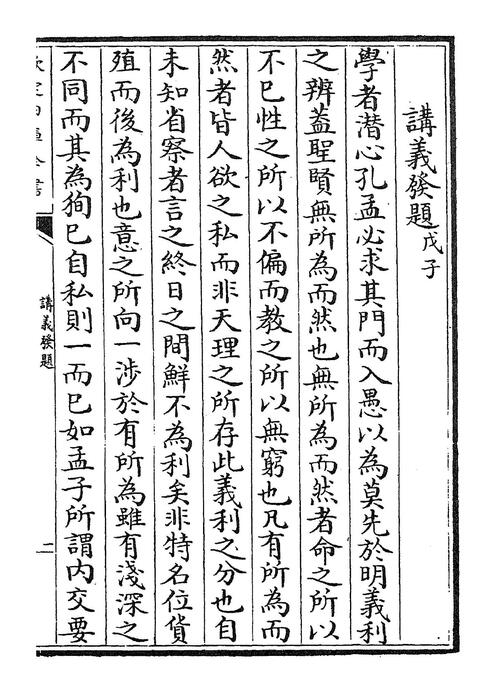 講義發題戊子
學者潛心孔孟必求其門而入愚以為莫先於明義利
之辨蓋聖賢無所為而然也無所為而然者命之所以
不已性之所以不偏而教之所以無窮也凡有所為而
然者皆人欲之私而非天理之所存此義利之分也自
未知省察者言之終日之間鮮不為利矣非特名位貨
殖而後為利也意之所向一涉於有所為雖有淺深之
不同而其為狥已自私則一而已如孟子所謂内交要
講義發題
二